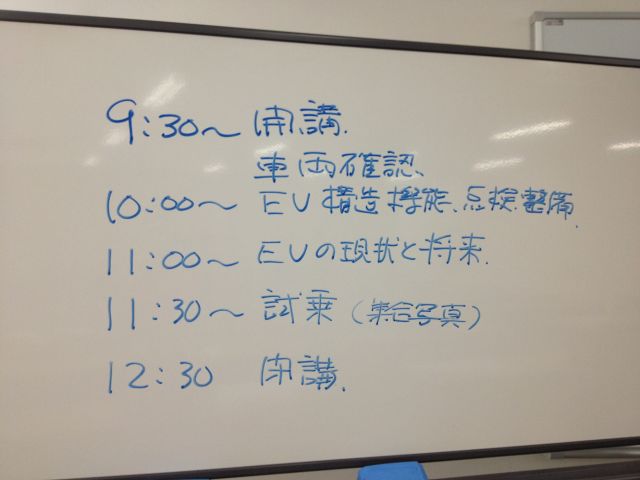 9:30～ 開講.
車両確認、
10:00～ EV構造機能、点検整備.
11:00～ EVの現状と将来.
11:30～ 試乗(集合写真)
12:30 閉講.